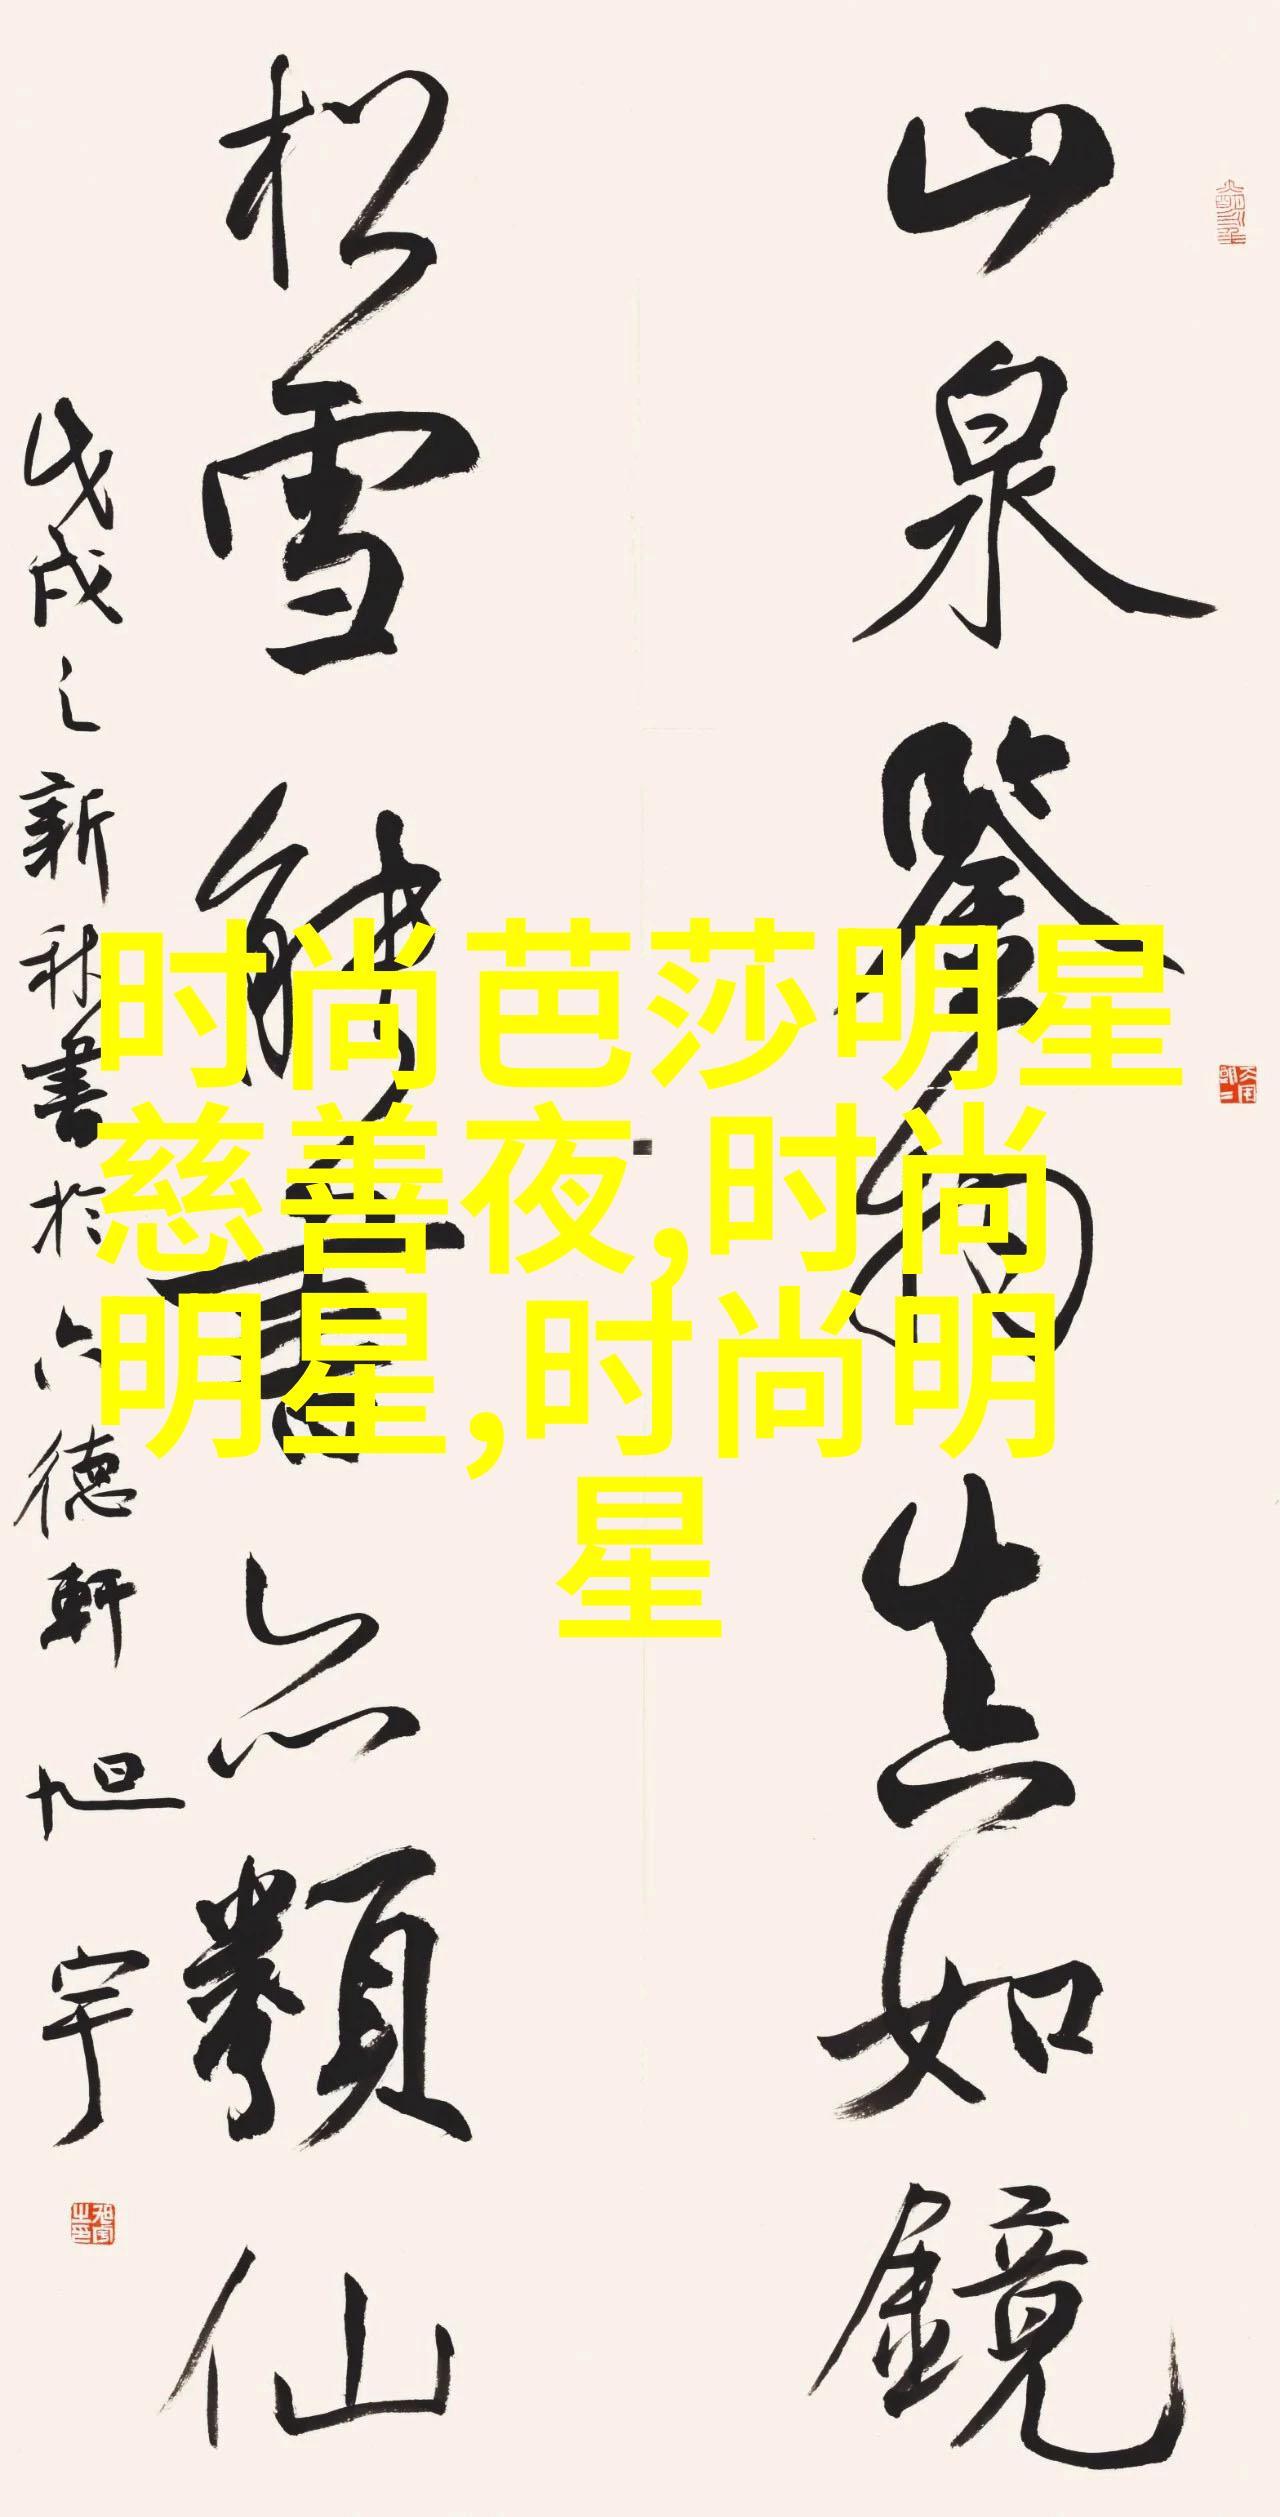 山泉鑒物真如鏡
松雪能書亦類仙
戊戌之新秋書於六德軒旭宇
时尚芭莎明星
慈善夜,时尚
明星,时尚明
星